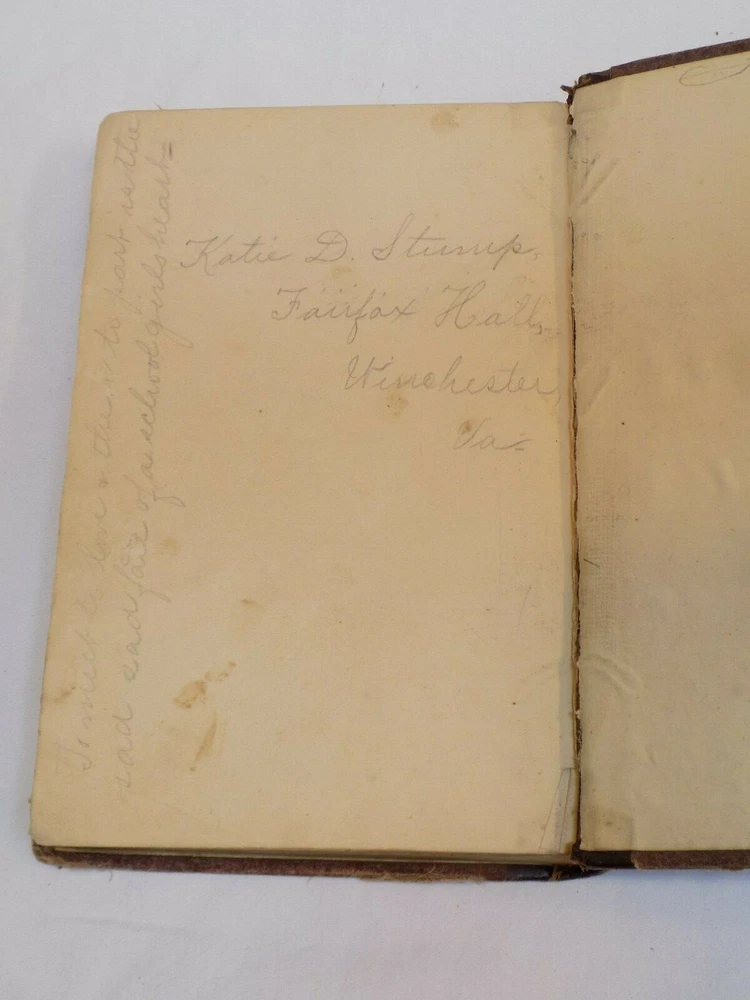 Katie D. Stump,
Fairfax Hall,
Winchester,
Va.
To meet to love & then to part is the
sad sad fate of a school girls heart